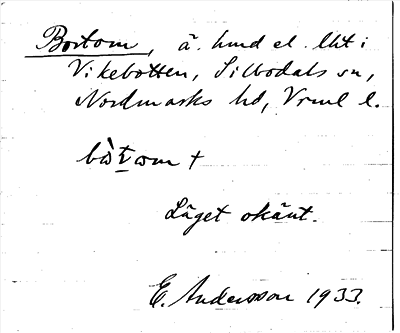 Bortom, ä. hmd el. lht i
Vikebotten, Silbodals sn,
Nordmarks hd, Vrml l.
bòtom +
Läget okänt.
E. Andersson 1933.